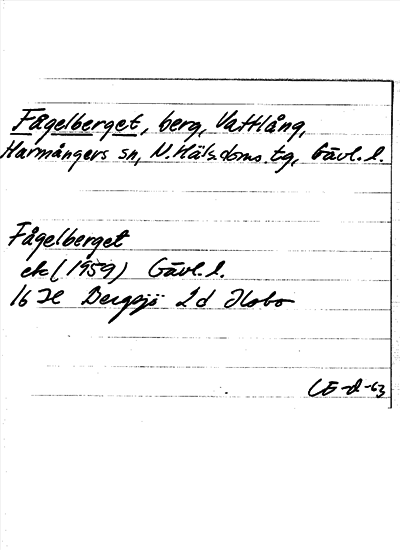 Fågelberget, berg, Vattlång,
Harmångers sn, N. Häls. doms. tg, Gävl. l.
Fågelberget
ek (1959) Gävl. l.
16 H Bergsjö 2d Ilsbo